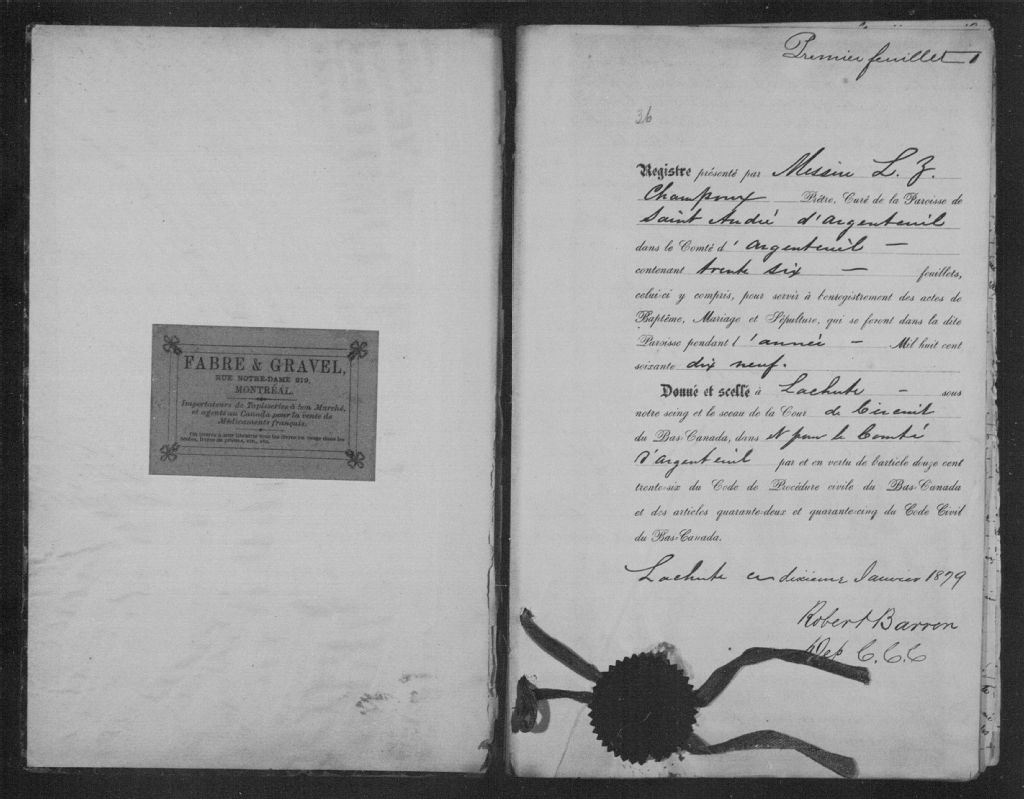 FABRE & GRAVEL,
RUE NOTRE-DAME 219,
MONTRÉAL.
Importateurs de Tapisseries à bon Marché,
et agents au Canada pour la vente de
Médicaments français.
On trouve à leur librairie tous les livres en usage dans les
écoles, livres de prières, etc., etc.
Premier feuillet 1
36
Registre présenté par Messire L. Z.
Champoux Prêtre, Curé de la Paroisse de
Saint André d'Argenteuil
dans le Comté d'Argenteuil —
contenant trente six — feuillets,
celui-ci y compris, pour servir à l'enregistrement des actes de
Baptême, Mariage et Sépulture, qui se feront dans la dite
Paroisse pendant l'année — Mil huit cent
soixante dix neuf.
Donné et scellé à Lachute — sous
notre seing et le sceau de la Cour de Circuit
du Bas-Canada, dans et pour le Comté
d'Argenteuil par et en vertu de l'article douze cent
trente-six du Code de Procédure civile du Bas-Canada
et des articles quarante-deux et quarante-cinq du Code Civil
du Bas-Canada.
Lachute ce dixieme Janvier 1879
Robert Barron
Dep C.C.C